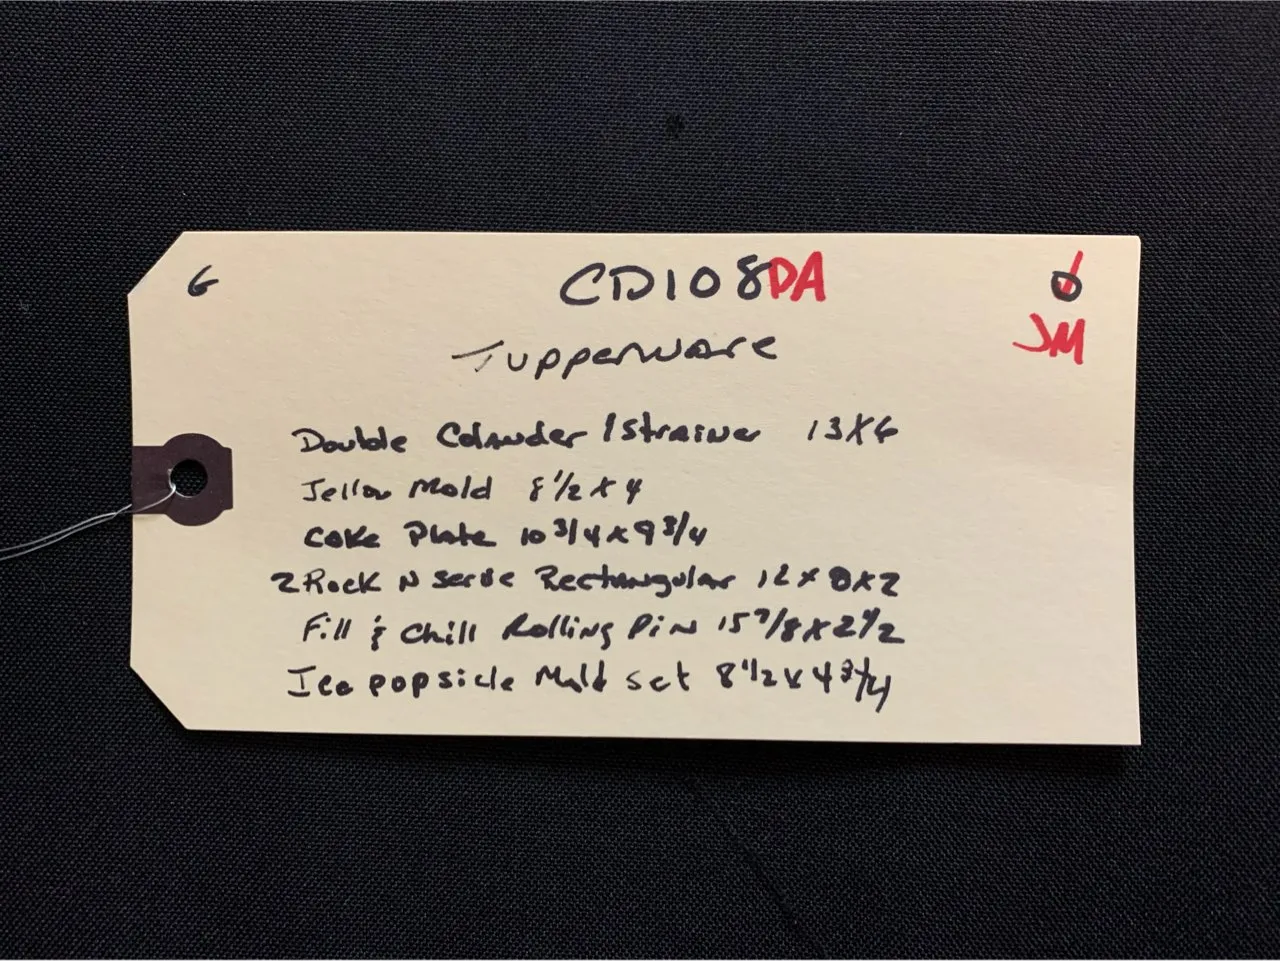 G CD108DA
JM
Tupperware
Double Colander / Strainer 13X6
Jello Mold 8 1/2 X 4
Cake Plate 10 3/4 x 9 3/4
2 Rock N Serve Rectangular 12 x 8 x 2
Fill & Chill Rolling Pin 15 7/8 X 2 1/2
Ice popsicle Mold set 8 1/2 x 4 3/4